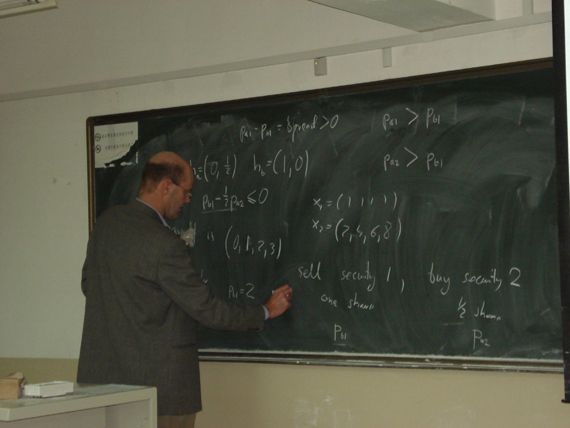 Pa1 - Pa2 = Spread > 0
Pa1 > Pb1
= (0, 1/2) hb = (1, 0)
Pa2 > Pb1
Pb1 - 1/2 Pa2 ≤ 0
X1 = (1 1 1 1)
X2 = (2, 4, 6, 8)
is (0, 1, 2, 3)
sell security 1, buy security 2
= 2
one share
1/2 share
Pb1
Pa2